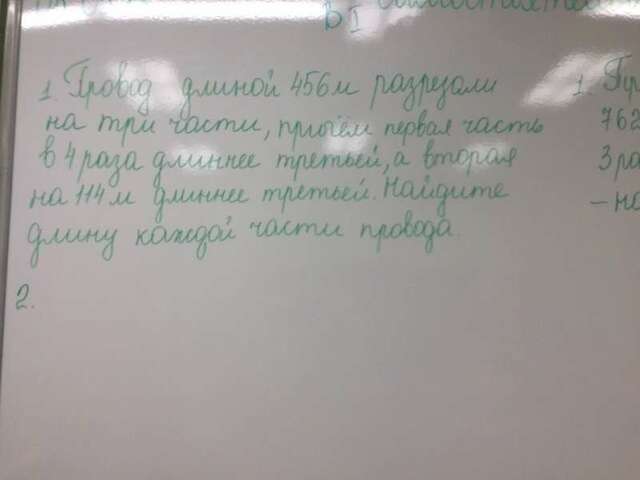 В I
1. Провод длиной 456м разрезали
на три части, причём первая часть
в 4 раза длиннее третьей, а вторая
на 114м длиннее третьей. Найдите
длину каждой части провода.
2.
1.
762
3 ра